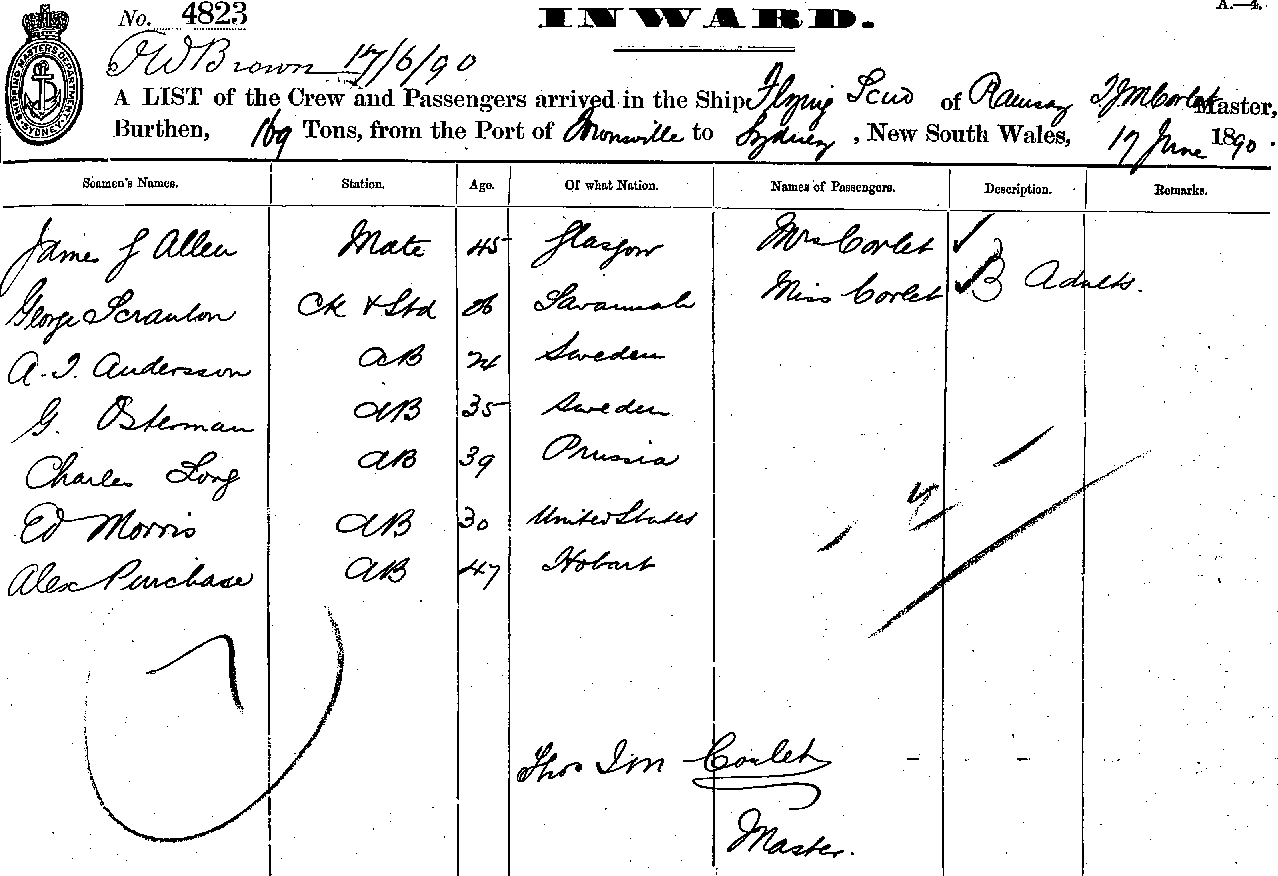 No. 4823
INWARD.
A.—4.
SHIPPING MASTERS DEPARTMENT SYDNEY
J W Brown 17/6/90
A LIST of the Crew and Passengers arrived in the Ship Flying Scud of Ramsay T J M Corlet Master,
Burthen, 169 Tons, from the Port of to Sydney, New South Wales, 17 June 1890.
Seamen's Names. Station. Age. Of what Nation. Names of Passengers. Description. Remarks.
James G Allen Mate 45 Glasgow Mrs Corlet
George Scranton Ck & Std 26 Savannah Miss Corlet Adults.
A. J. Andersson AB 24 Sweden
G. Osterman AB 35 Sweden
Charles Long AB 39 Prussia
Ed Morris AB 30 United States
Alex Purchase AB 47 Hobart
7
Thos Corlet
Master.